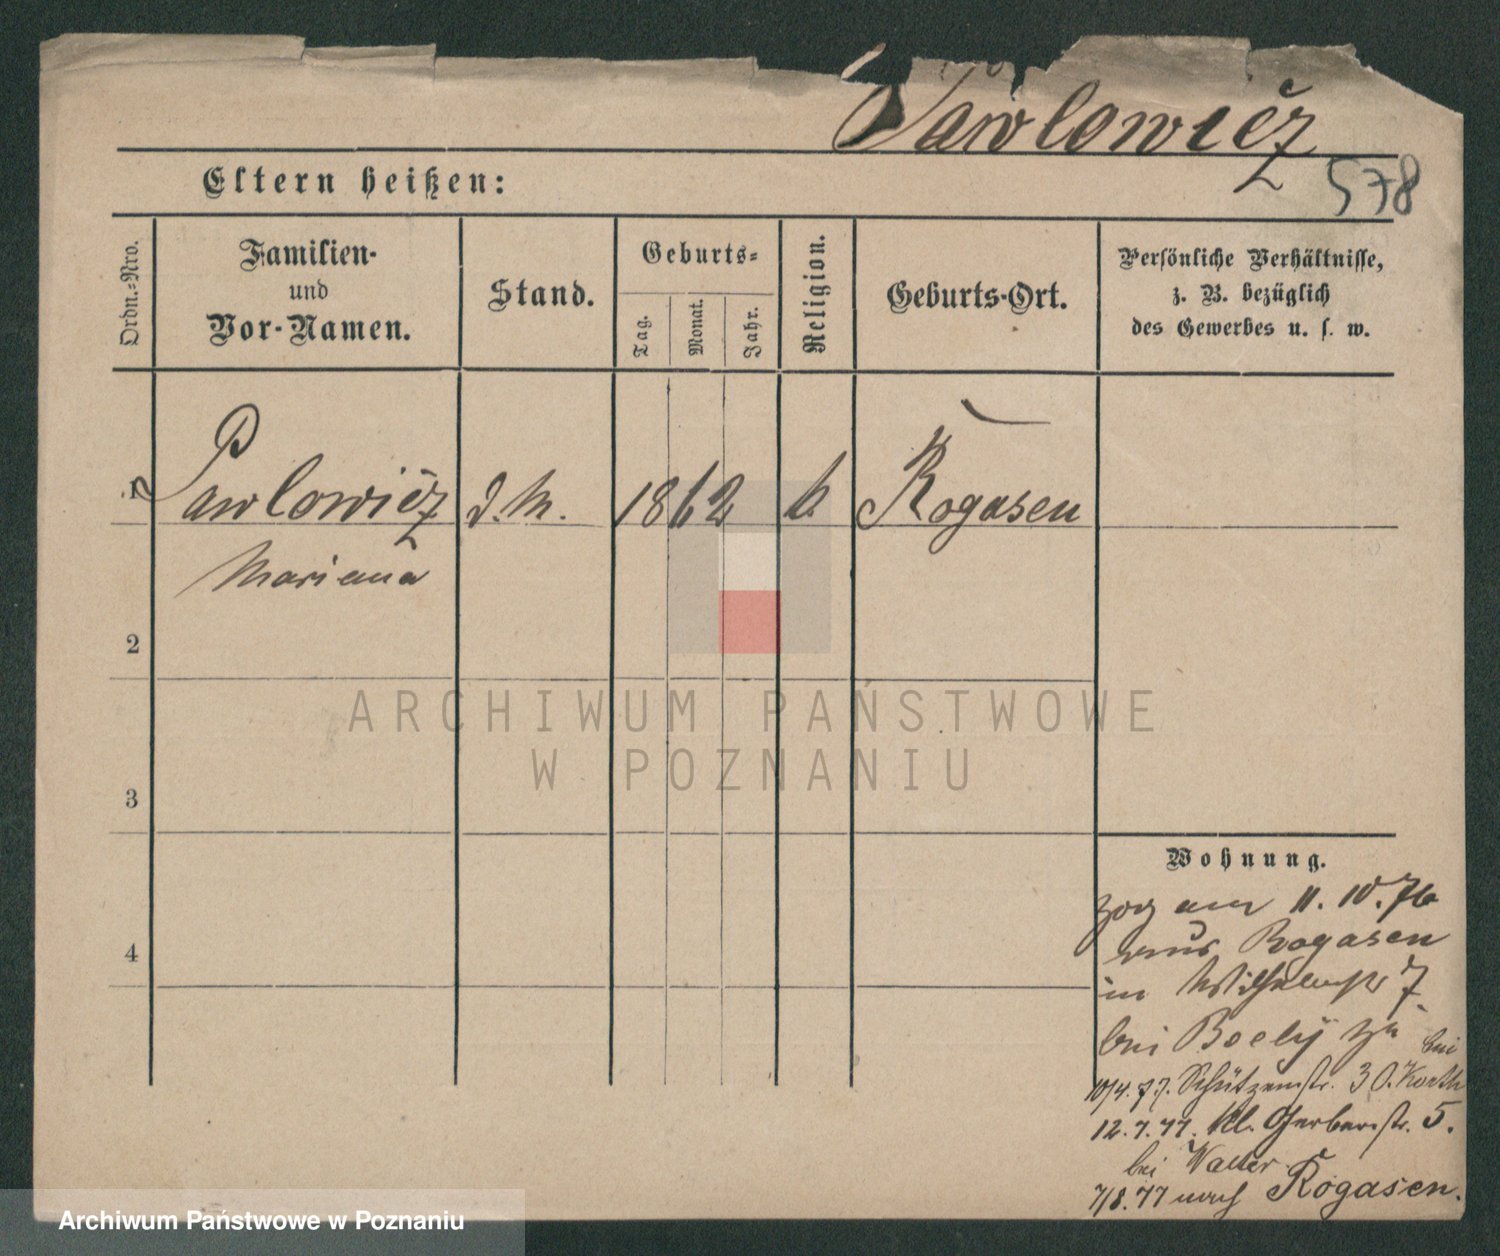 Pawlowicz
578
Eltern heißen:
Ordn.-Nro.
Familien-
und
Vor-Namen.
Stand.
Geburts-
Tag.
Monat.
Jahr.
Religion.
Geburts-Ort.
Persönliche Verhältnisse,
z. B. bezüglich
des Gewerbes u. s. w.
1
Pawlowicz
d. M.
1862
k.
Rogasen
Mariana
2
3
4
Wohnung.
zog am 11.10.76
aus Rogasen
in Wilhelmstr 7
bei Boely zu
bei
10/4.77. Schützenstr. 30. Korth
12.7.77. Kl. Gerberstr. 5.
bei
7/8.77 nach Rogasen.
ARCHIWUM PAŃSTWOWE
W POZNANIU
Archiwum Państwowe w Poznaniu